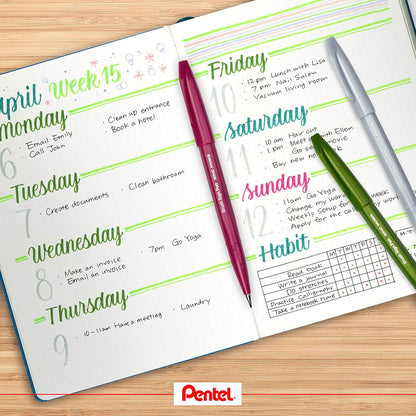 April Week 15
Monday
6
Email Emily
Call John
Clean up entrance
Book a hotel
Tuesday
7
Create documents
Clean bathroom
Wednesday
8
Make an invoice
Email an invoice
7pm Go Yoga
Thursday
9
10-11am Have a meeting
Laundry
Friday
10
12pm Lunch with Lisa
7 pm Nail Salon
Vacuum living room
Saturday
11
10 am Hair cut
1 pm Meet with Ellen
Go movie
Buy new book
Sunday
12
11am Go Yoga
Change my work
Weekly Setup for week
Apply for the
Habit
M T W T F S
Read book
Write a journal
Do stretches
Practice Calligraphy
Take a notebook time
Pentel